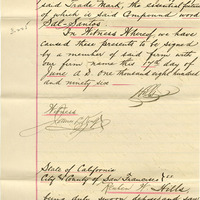 said Trade Mark, the essential feature
of which is said Compound word
Dal-Santos.
In Witness Whereof, we have
caused these presents to be signed
by a member of said firm with
our firm name this 17th day of
June A.D. one thousand eight hundred
and ninety six
Hills
Witness
State of California
City & County of San Francisco } ss
Reuben W. Hills
being duly sworn deposes and says